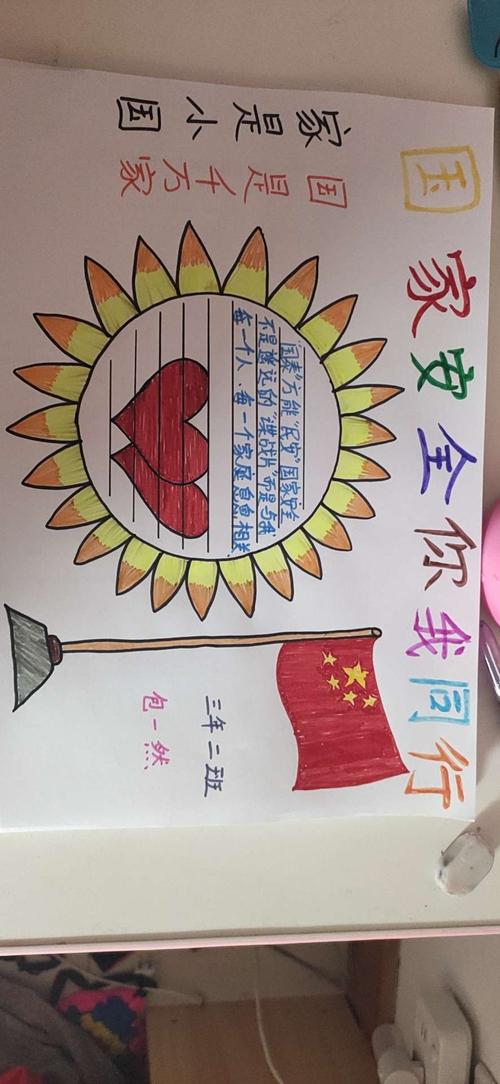 国家安全你我同行
家是小国
国是千万家
"国泰"方能"民安"国家安全
不是遥远的"谍战片"而是与我
每一个人、每一个家庭息息相关
三年二班
包一然